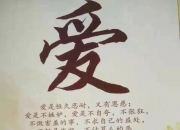 爱
爱是恒久忍耐，又有恩慈；
爱是不嫉妒，爱是不自夸，不张狂，
不做害羞的事，不求自己的益处，